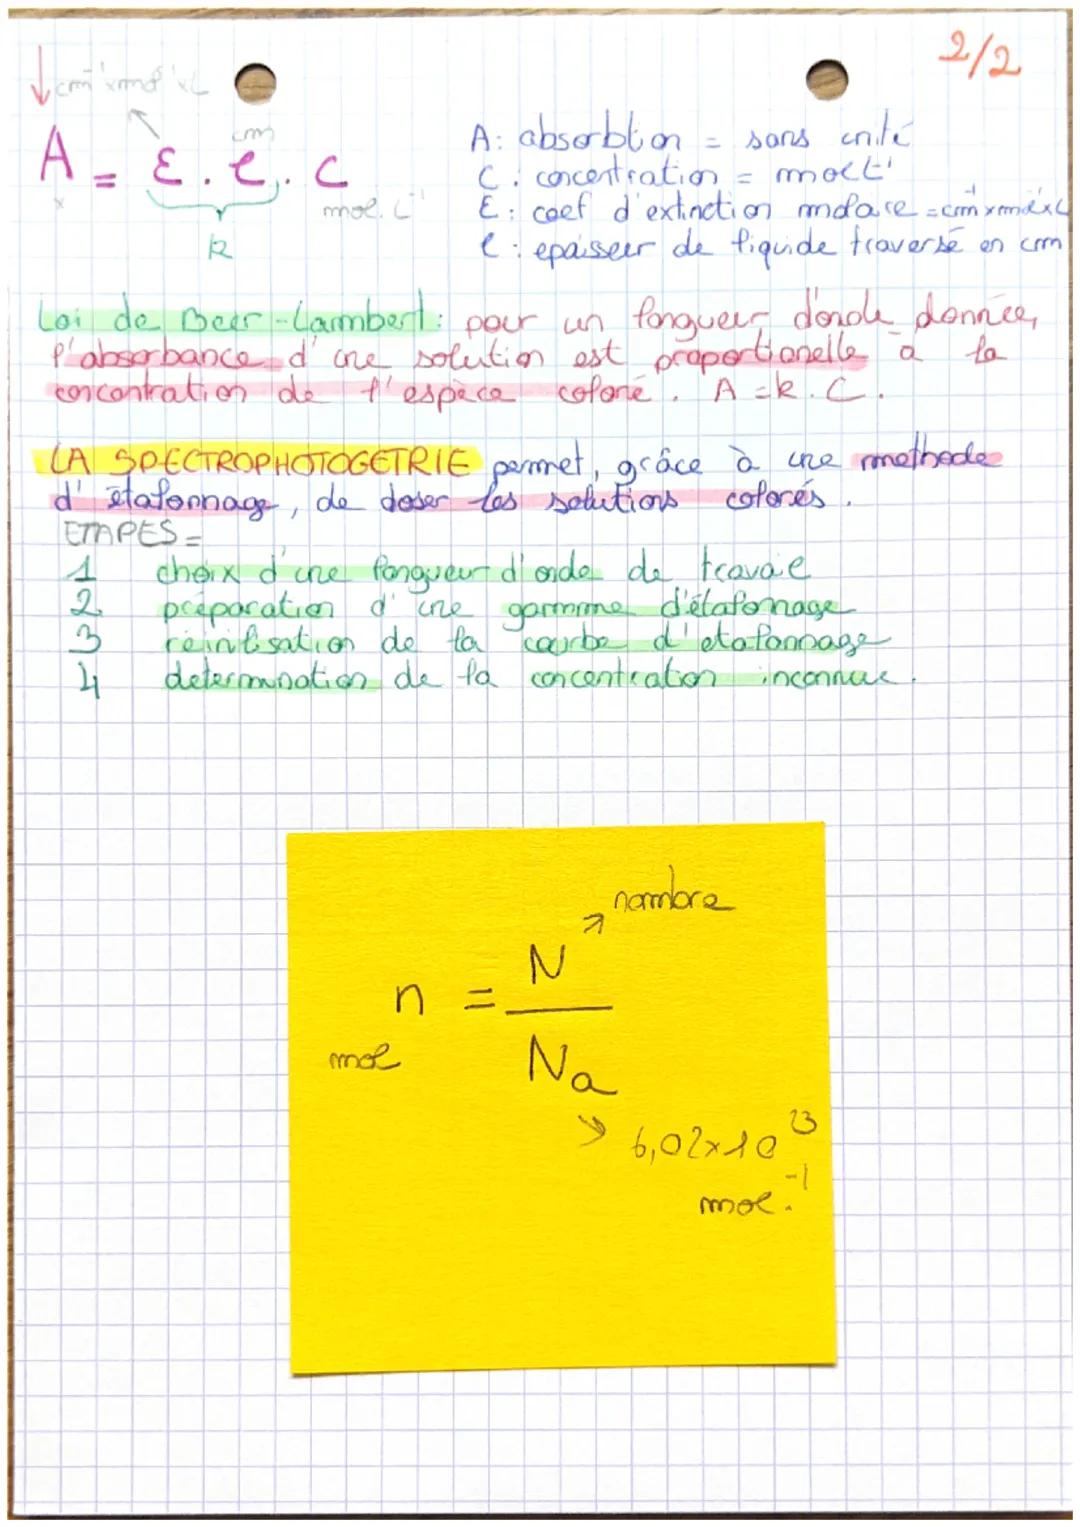 2/2
cm⁻¹ x mol⁻¹ x L
cm
A = ε . l . C
x
mol. L⁻¹
k
A : absorbtion = sans unité
C : concentration = mol L⁻¹
ε : coef d'extinction molaire = cm⁻¹ x mol⁻¹ x L
l : epaisseur de liquide traversé en cm
Loi de Beer-Lambert : pour un longueur d'onde donnée,
l'absorbance d'une solution est proportionelle à la
concentration de l'espèce coloré. A = k . C .
LA SPECTROPHOTOGETRIE permet, grâce à une methode
d'étalonnage, de doser les solutions colorés.
ETAPES =
1 choix d'une longueur d'onde de travail
2 préparation d'une gamme d'étalonage
3 réinlisation de la courbe d'etalonnage
4 determination de la concentration inconnue.
nombre
n = N / Na
mol
6,02x10²³
mol.⁻¹